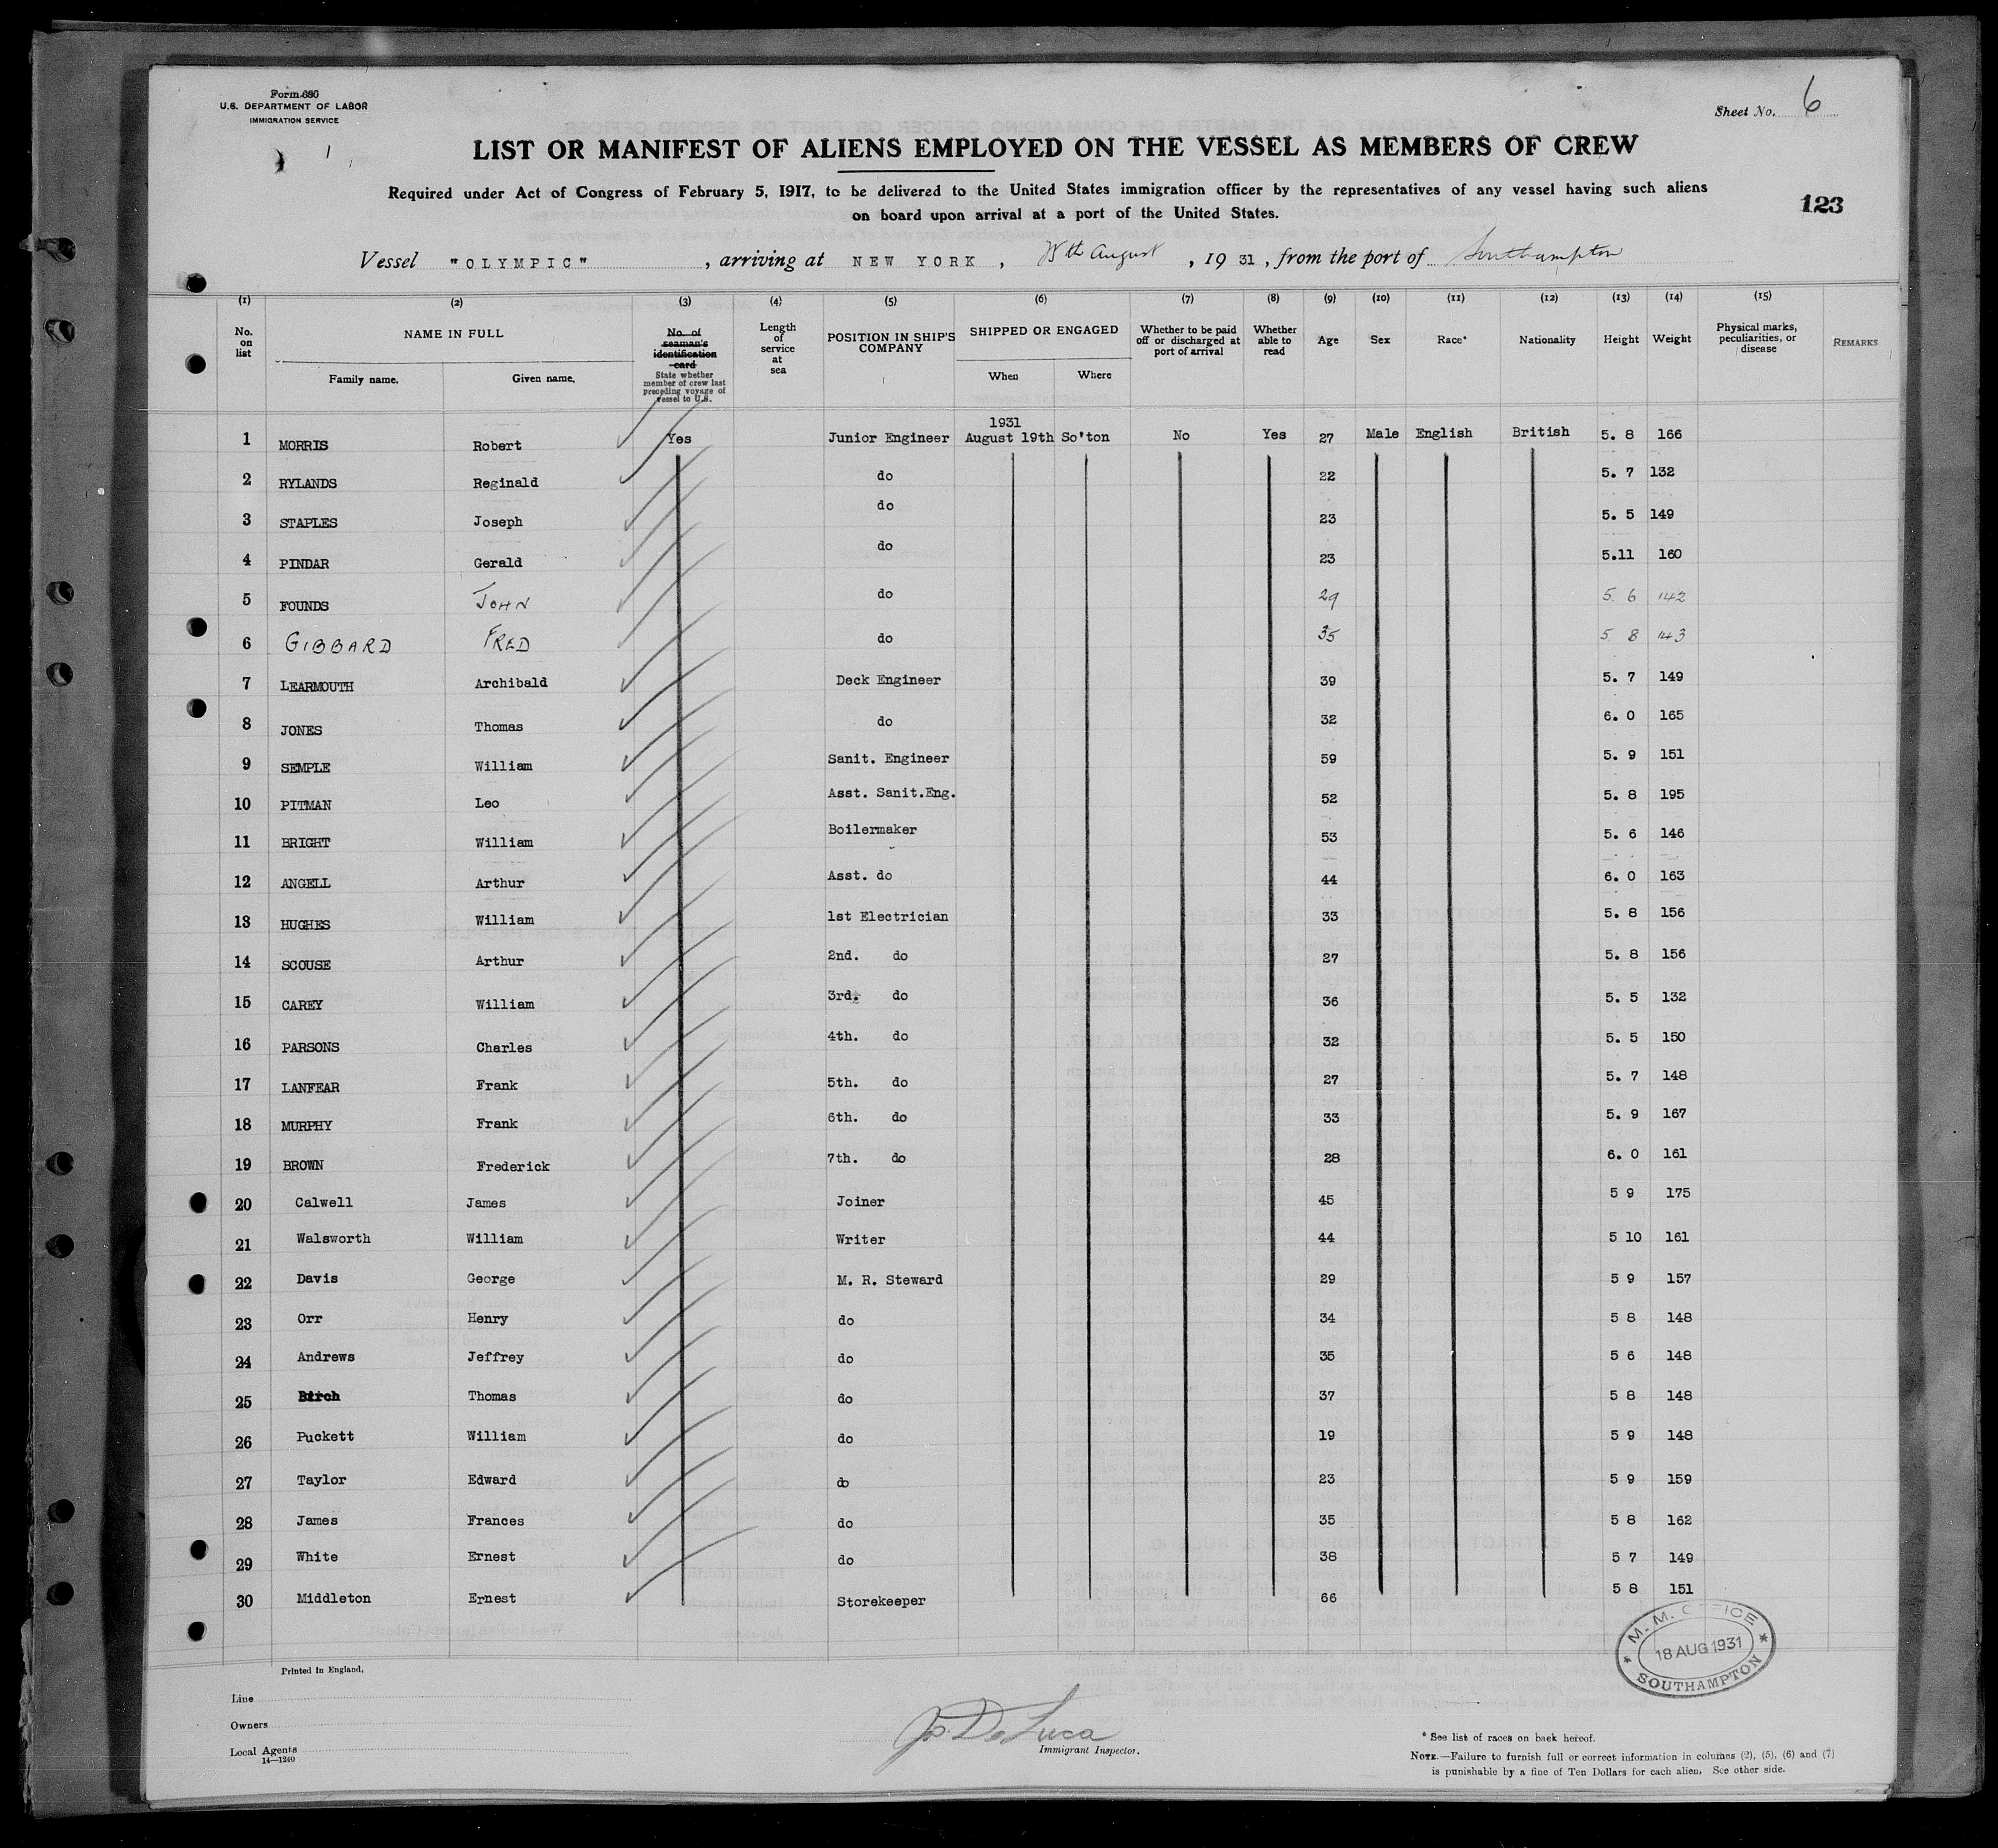 Form 680
U.S. DEPARTMENT OF LABOR
IMMIGRATION SERVICE
Sheet No. 6
LIST OR MANIFEST OF ALIENS EMPLOYED ON THE VESSEL AS MEMBERS OF CREW
Required under Act of Congress of February 5, 1917, to be delivered to the United States immigration officer by the representatives of any vessel having such aliens
on board upon arrival at a port of the United States.
123
Vessel "OLYMPIC", arriving at NEW YORK, August, 1931, from the port of Southampton
(1) (2) (3) (4) (5) (6) (7) (8) (9) (10) (11) (12) (13) (14) (15)
No. on list NAME IN FULL Family name. Given name. No. of seaman's identification card State whether member of crew last preceding voyage of vessel to U.S. Length of service at sea POSITION IN SHIP'S COMPANY SHIPPED OR ENGAGED When Where Whether to be paid off or discharged at port of arrival Whether able to read Age Sex Race* Nationality Height Weight Physical marks, peculiarities, or disease REMARKS
1931
1 MORRIS Robert Yes Junior Engineer August 19th So'ton No Yes 27 Male English British 5. 8 166
2 RYLANDS Reginald do 22 5. 7 132
3 STAPLES Joseph do 23 5. 5 149
4 PINDAR Gerald do 23 5.11 160
5 FOUNDS JOHN do 29 5 6 142
6 GIBBARD FRED do 35 5 8 143
7 LEARMOUTH Archibald Deck Engineer 39 5. 7 149
8 JONES Thomas do 32 6. 0 165
9 SEMPLE William Sanit. Engineer 59 5. 9 151
10 PITMAN Leo Asst. Sanit.Eng. 52 5. 8 195
11 BRIGHT William Boilermaker 53 5. 6 146
12 ANGELL Arthur Asst. do 44 6. 0 163
13 HUGHES William 1st Electrician 33 5. 8 156
14 SCOUSE Arthur 2nd. do 27 5. 8 156
15 CAREY William 3rd. do 36 5. 5 132
16 PARSONS Charles 4th. do 32 5. 5 150
17 LANFEAR Frank 5th. do 27 5. 7 148
18 MURPHY Frank 6th. do 33 5. 9 167
19 BROWN Frederick 7th. do 28 6. 0 161
20 Calwell James Joiner 45 5 9 175
21 Walsworth William Writer 44 5 10 161
22 Davis George M. R. Steward 29 5 9 157
23 Orr Henry do 34 5 8 148
24 Andrews Jeffrey do 35 5 6 148
25 Birch Thomas do 37 5 8 148
26 Puckett William do 19 5 9 148
27 Taylor Edward do 23 5 9 159
28 James Frances do 35 5 8 162
29 White Ernest do 38 5 7 149
30 Middleton Ernest Storekeeper 66 5 8 151
M. M. OFFICE
18 AUG 1931
SOUTHAMPTON
Printed in England.
Line
Owners
Local Agents
14—1240
Jos. De Luca
Immigrant Inspector.
* See list of races on back hereof.
NOTE.—Failure to furnish full or correct information in columns (2), (5), (6) and (7)
is punishable by a fine of Ten Dollars for each alien. See other side.